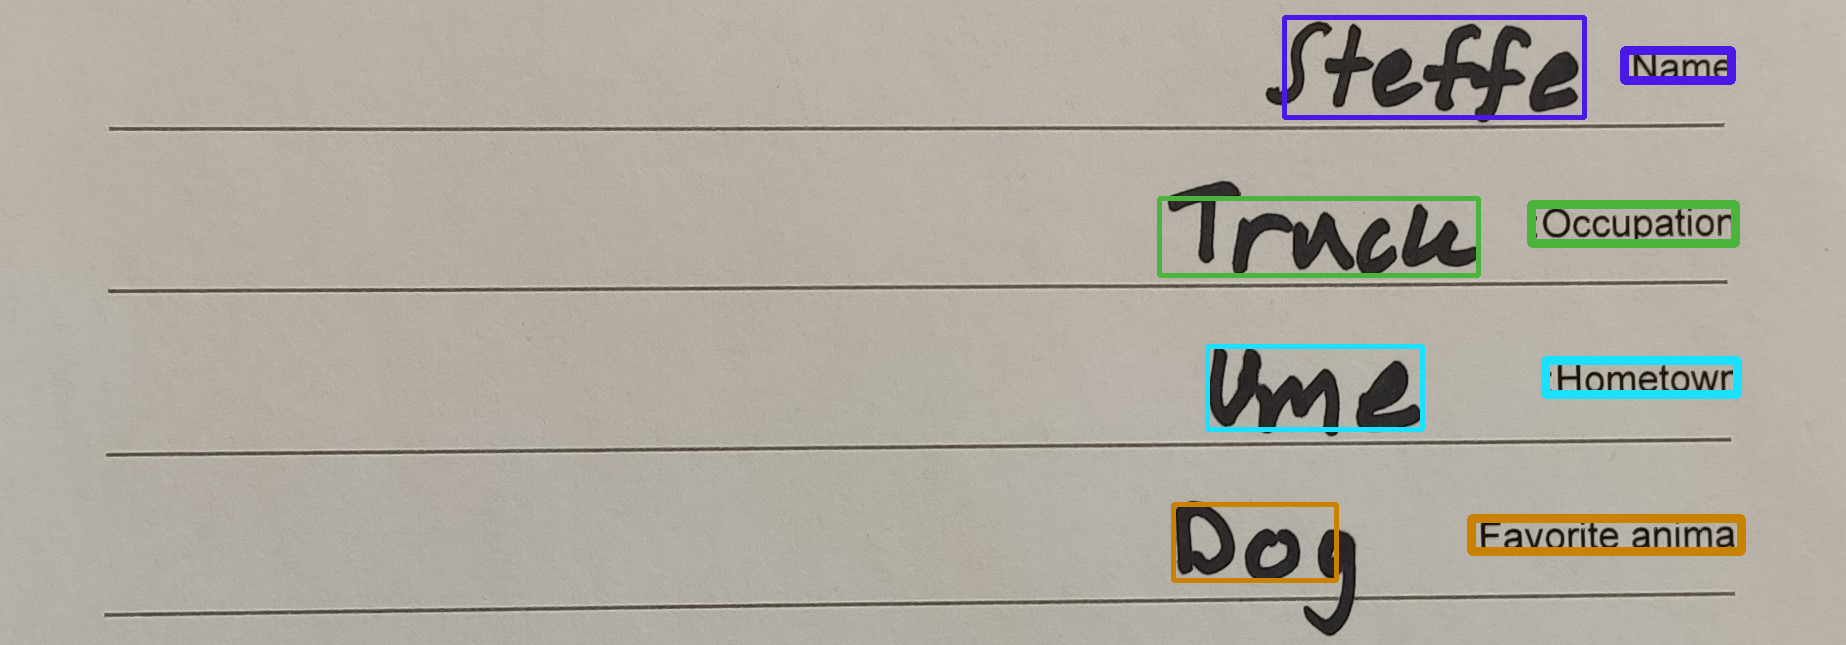 Steffe Name
Truck :Occupation
Ume :Hometown
Dog Favorite animal